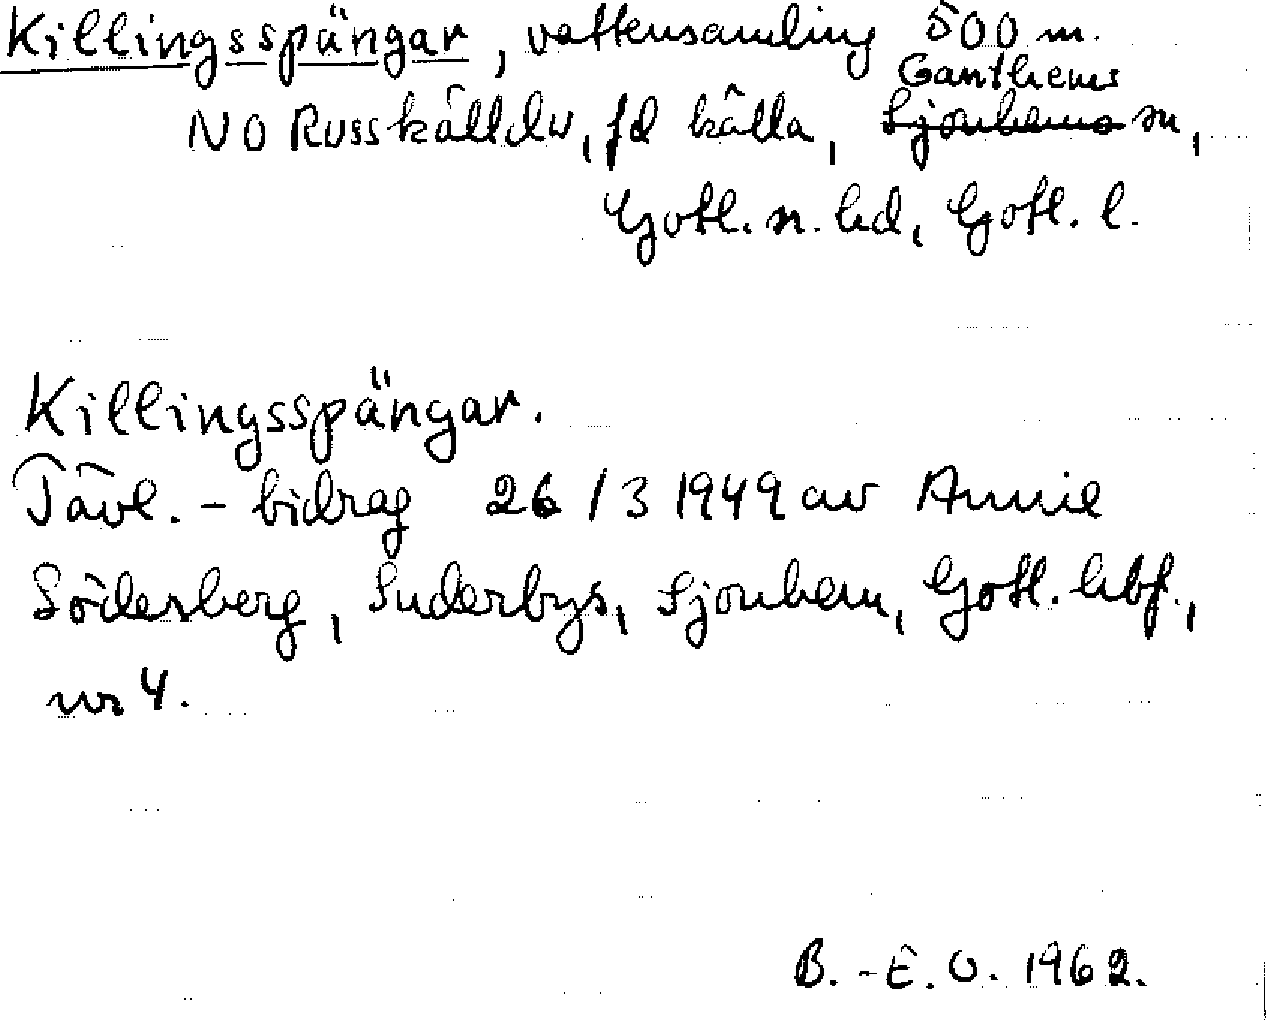 Killingsspängar, vattensamling 500 m.
Ganthems
NO Russkälldu, fd källa, Sjonhems sn,
Gotl. n. hd, Gotl. l.
Killingsspängar.
Tävl. - bidrag 26/3 1949 av Annie
Söderberg, Suderbys, Sjonhem, Gotl. hbf.,
nr 4.
B. - E. O. 1962.